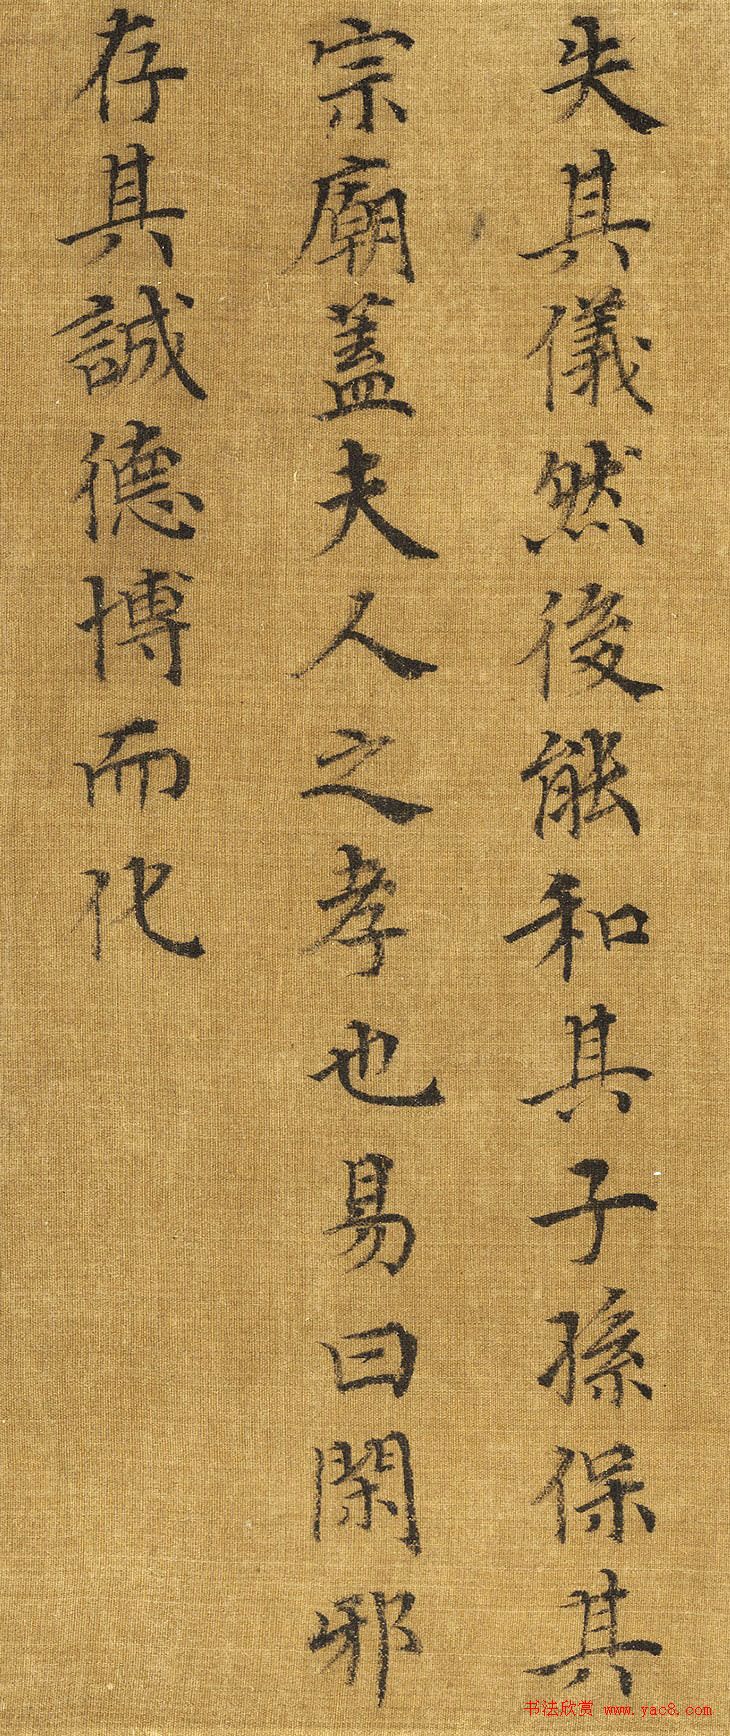 失其儀然後能和其子孫保其
宗廟蓋夫人之孝也易曰閑邪
存其誠德博而化
书法欣赏 www.yac8.com